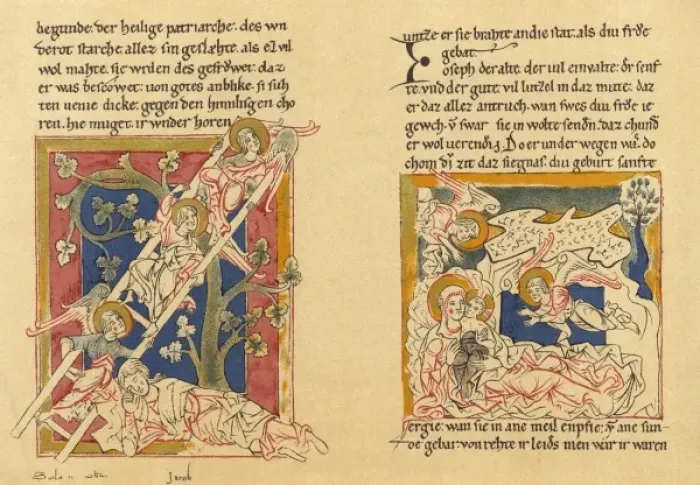 begunde· der heilige patriarche· des wn
derot starche· allez sin geslæhte· als ez vil
wol mahte. sie wrden des gefrowet· daz
er was von gotes anblike· si
dicke· gegen den himilisgen cho
ren. hie muget ir wnder horen
Jacob
untze er sie brahte an die stat. als diu
gebat.
Joseph der alte. der vil einvalte· senf
te· vnd der gute· vil lutzel in daz mute· daz
er daz allez antruch· wan swes diu ie
gewch· swar sie in wolte daz chund
er wol Do er under wegen do
chom zit daz sie gnas· diu geburt sanfte
wan sie in ane meil enpfie· ane sun
de gebar· von rehte ir leids men war ir waren